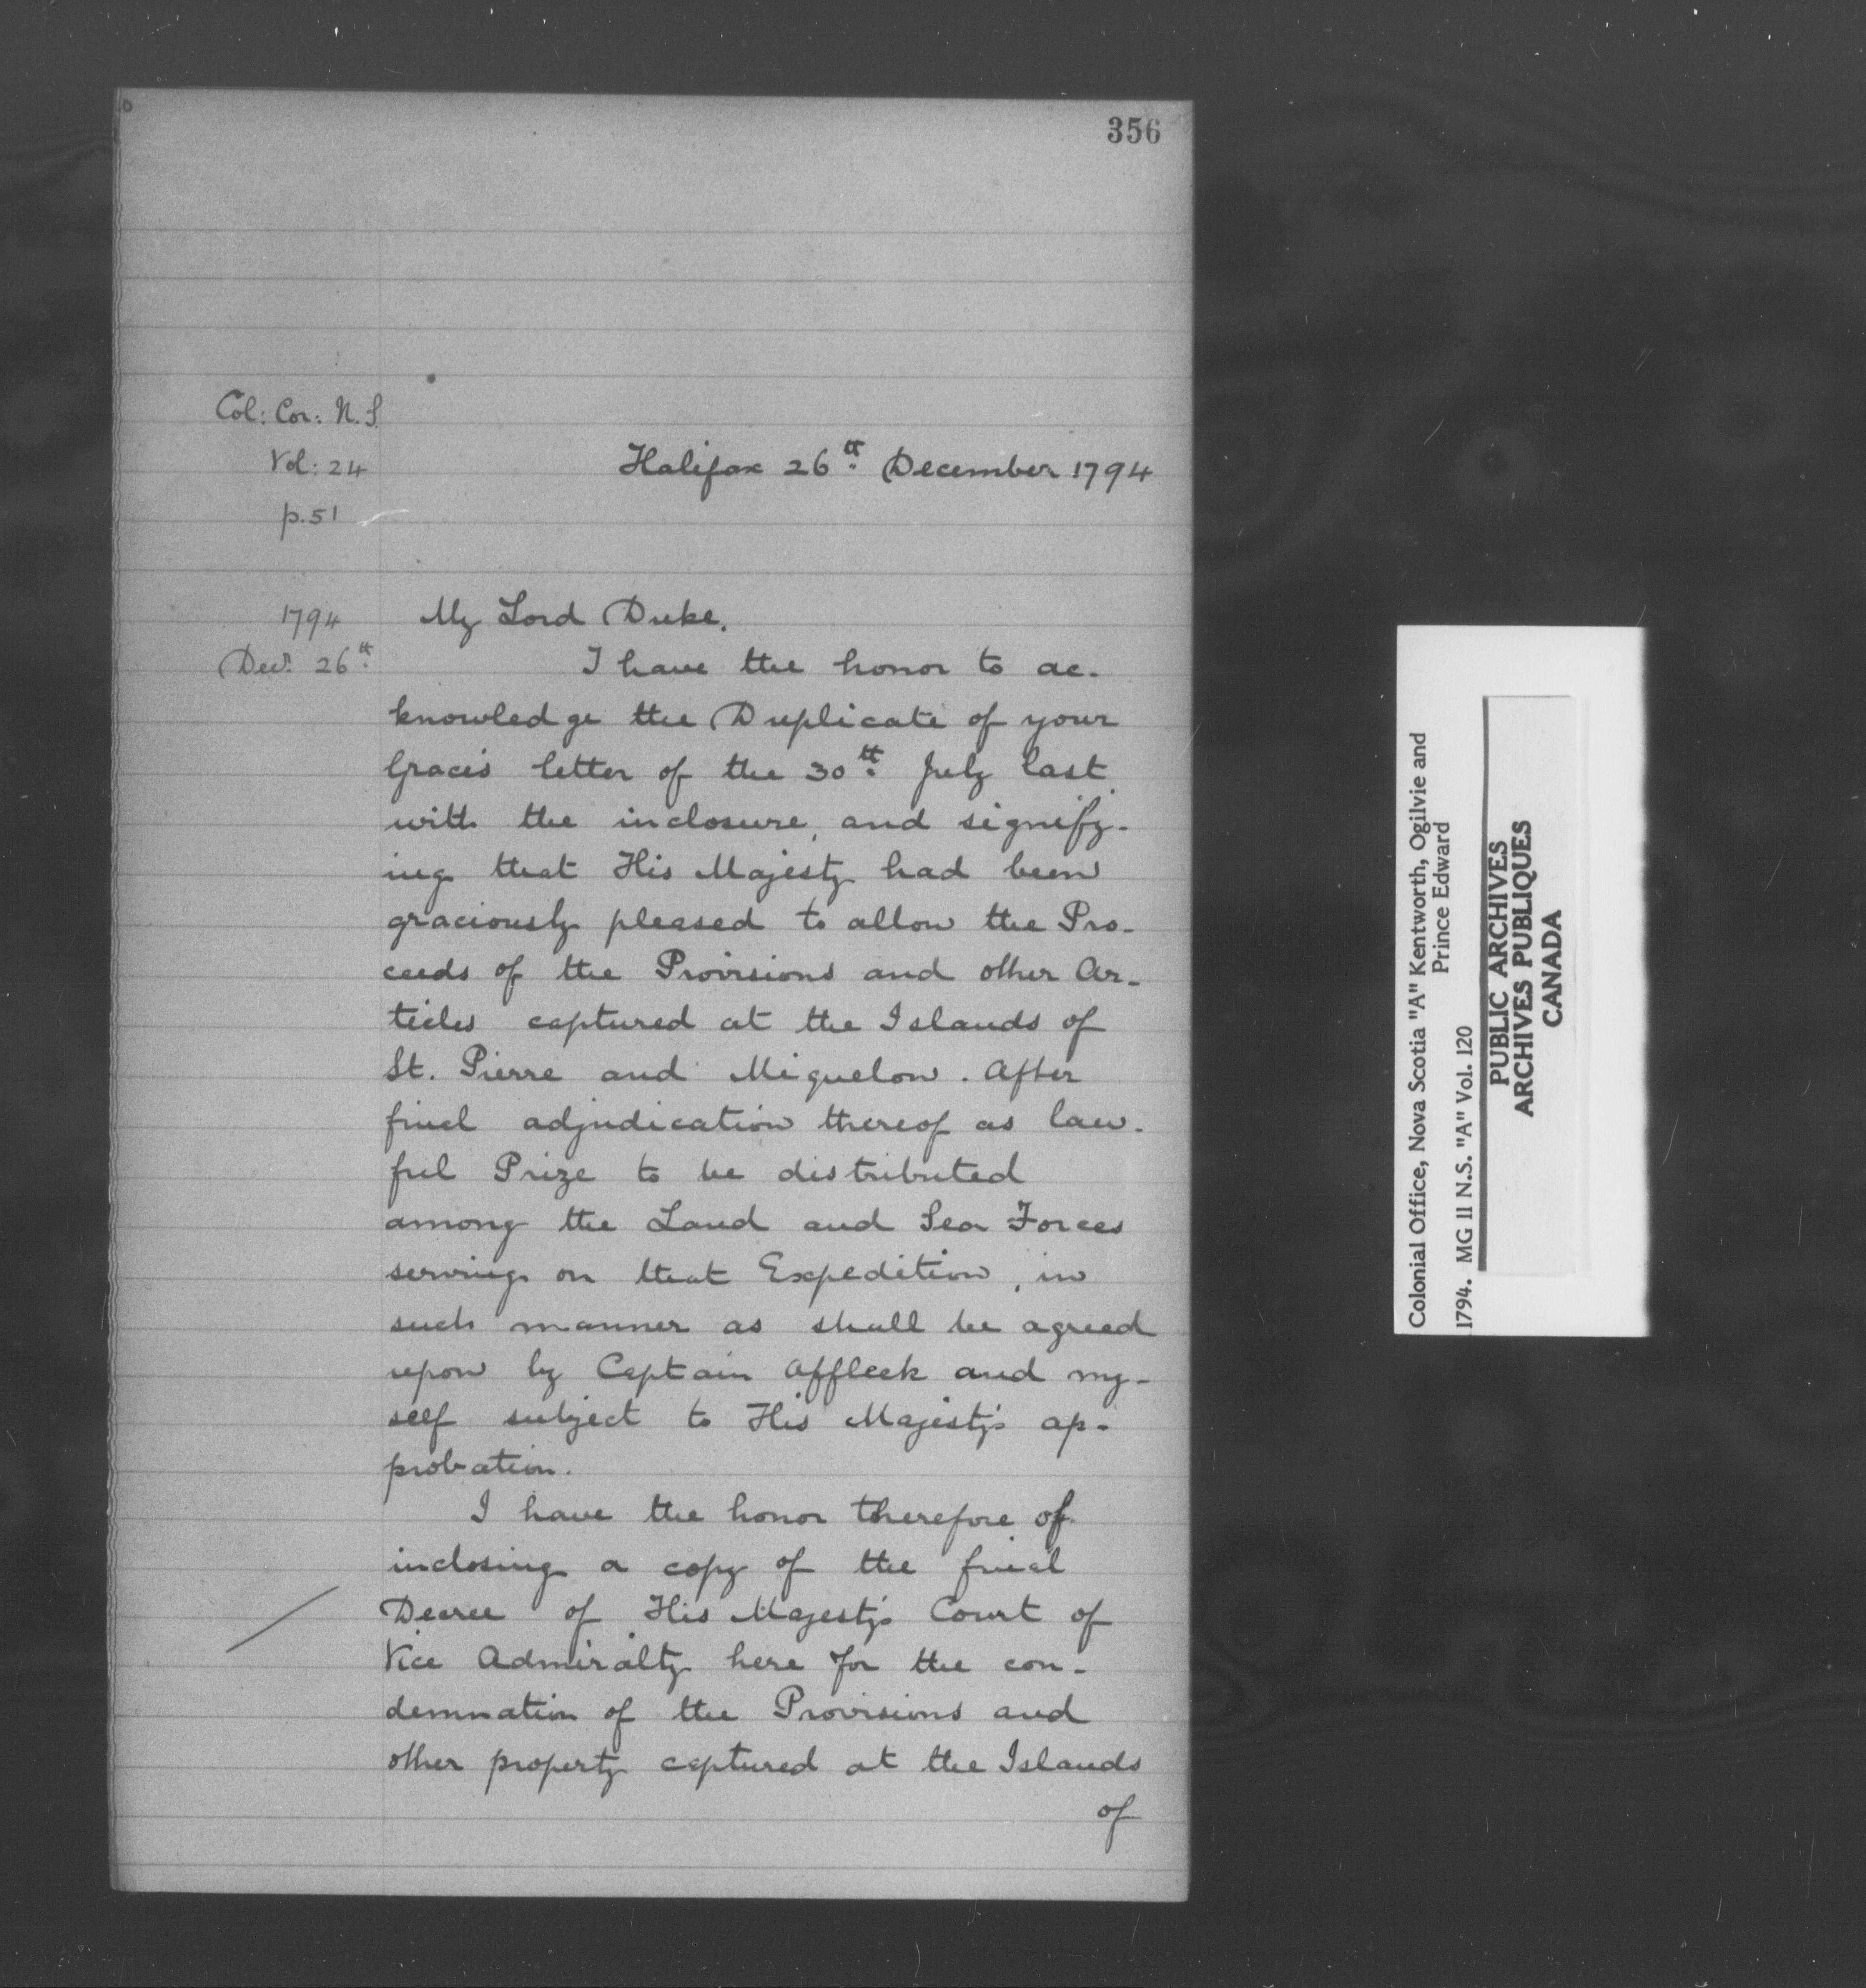 356
Col: Cor: N.S.
Vol: 24
p. 51
Halifax 26th December 1794
1794
Decr 26th
My Lord Duke,
I have the honor to ac-
knowledge the Duplicate of your
Grace's letter of the 30th July last
with the inclosure, and signify-
ing that His Majesty had been
graciously pleased to allow the Pro-
ceeds of the Provisions and other Ar-
ticles captured at the Islands of
St. Pierre and Miquelon. After
final adjudication thereof as law-
ful Prize to be distributed
among the Land and Sea Forces
serving on that Expedition, in
such manner as shall be agreed
upon by Captain Affleck and my-
self subject to His Majesty's ap-
probation.
I have the honor therefore of
inclosing a copy of the final
Decree of His Majesty's Court of
Vice Admiralty here for the con-
demnation of the Provisions and
other property captured at the Islands
of
Colonial Office, Nova Scotia "A" Kentworth, Ogilvie and
Prince Edward
1794. MG 11 N.S. "A" Vol. 120
PUBLIC ARCHIVES
ARCHIVES PUBLIQUES
CANADA